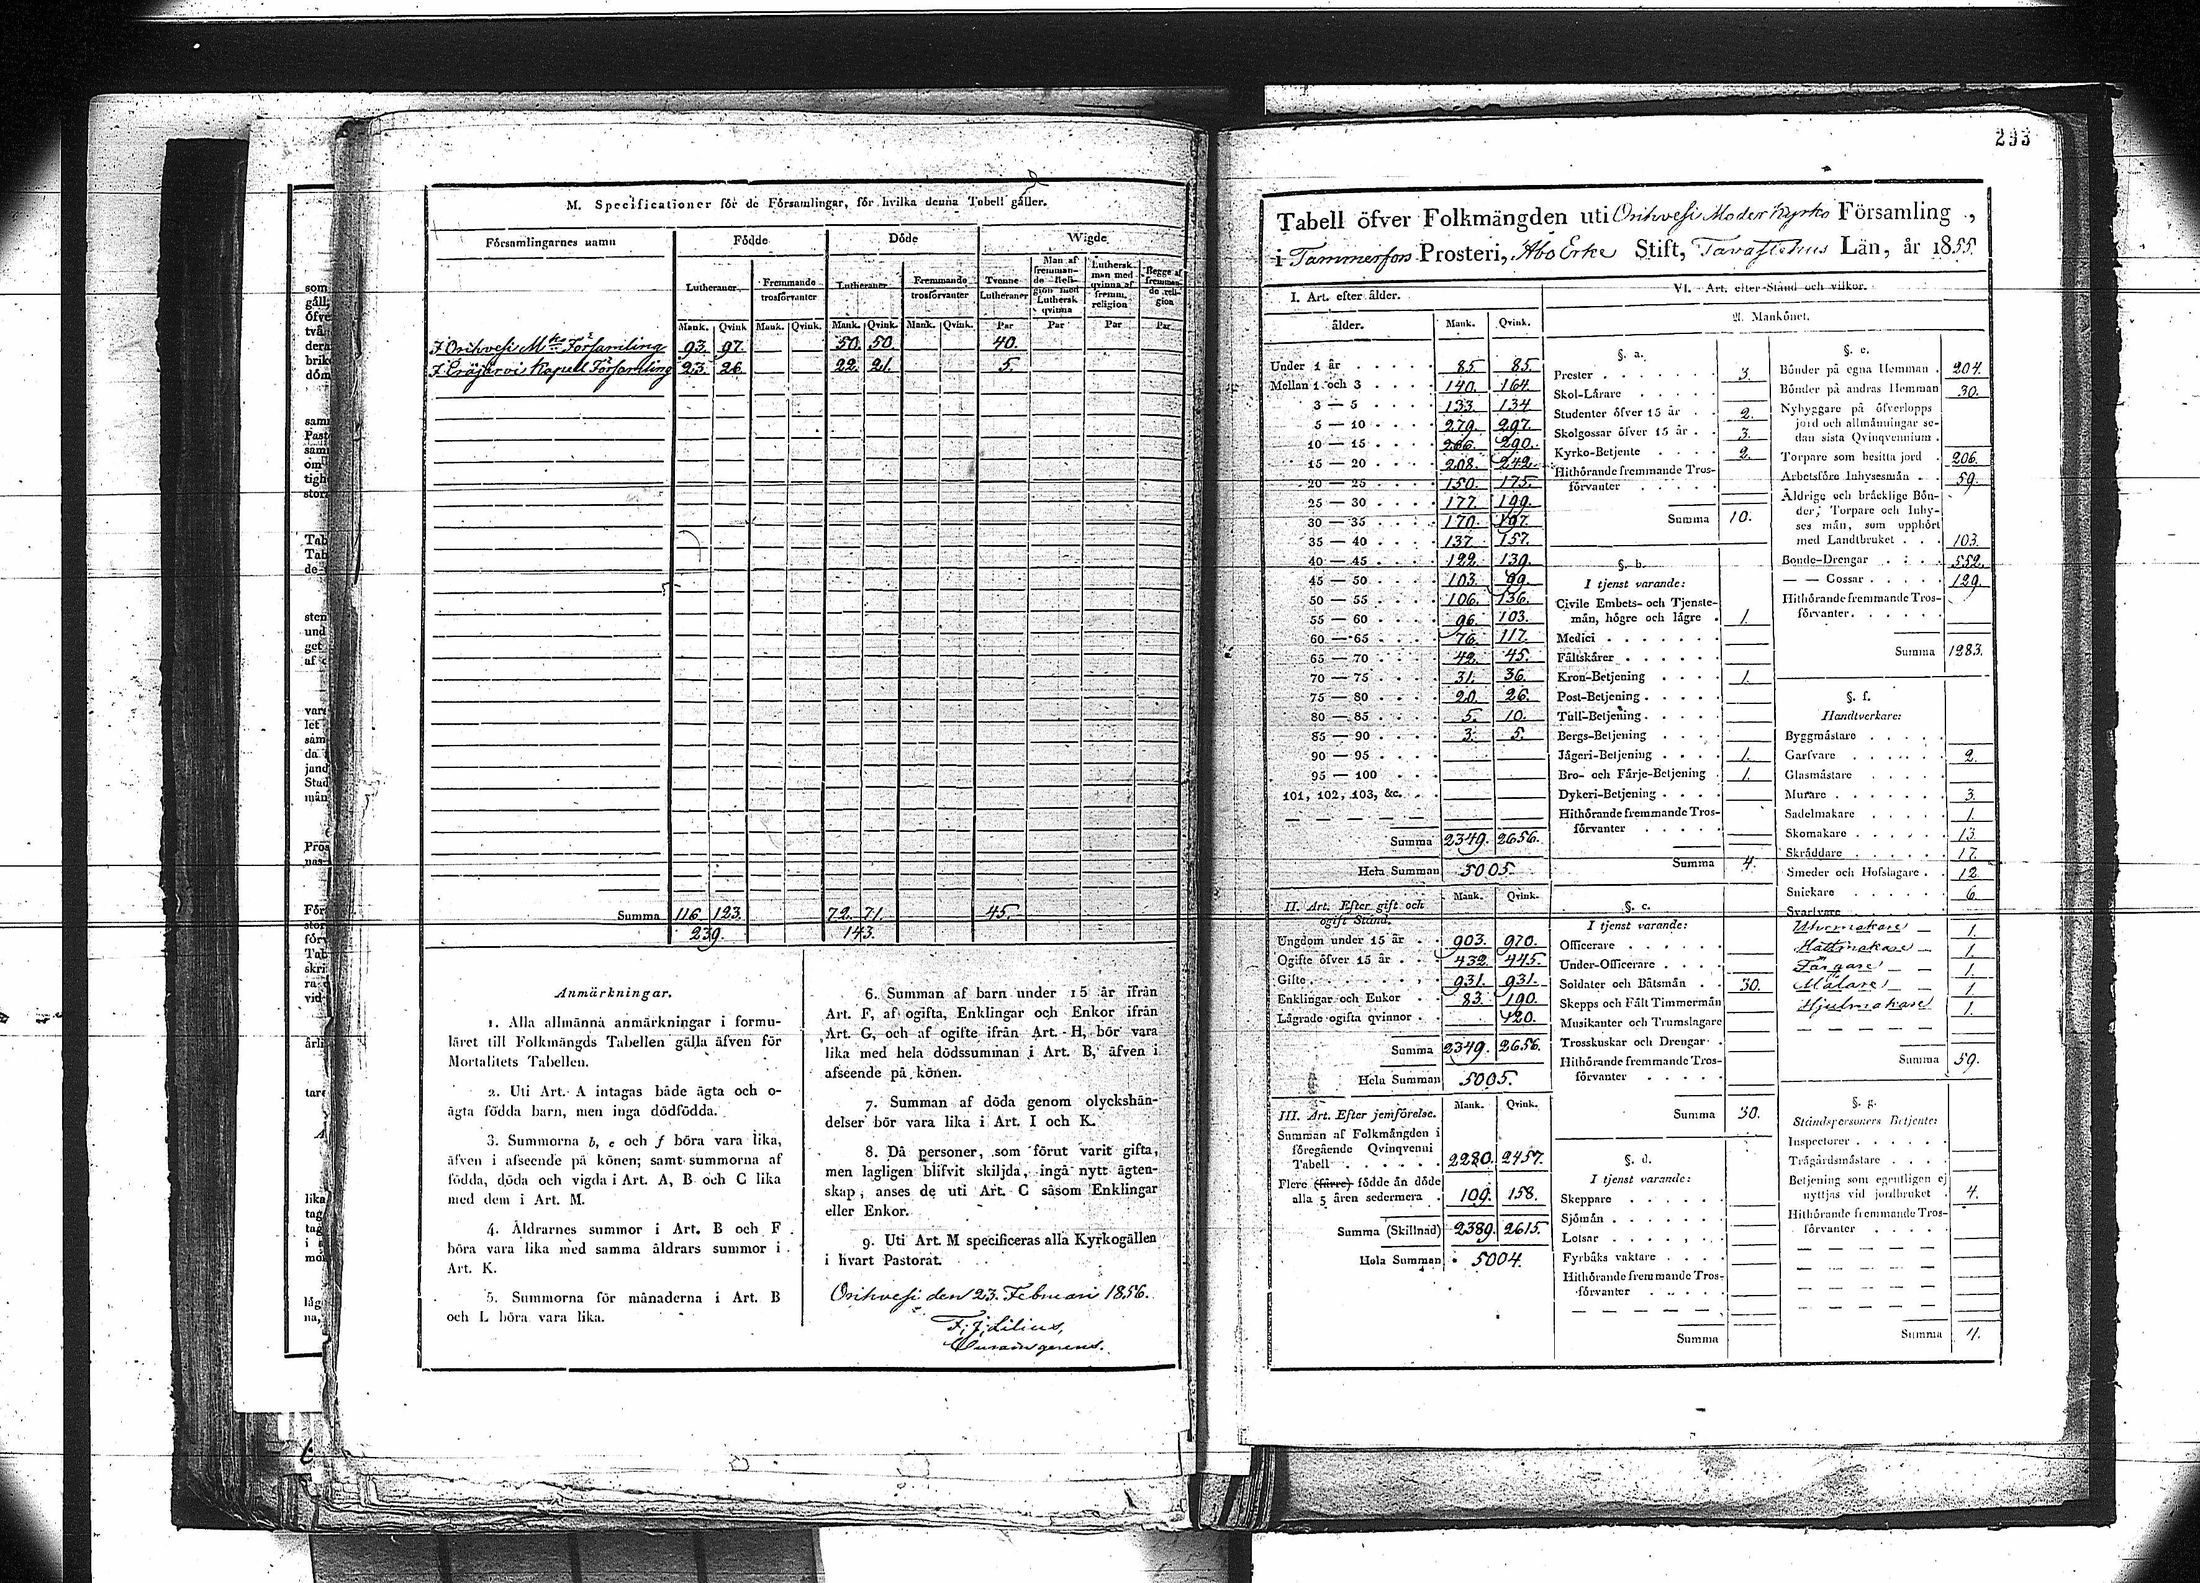 M. Specificationer för de Församlingar, för hvilka denna Tabell gäller.
Församlingarnes namn
Födde
Döde
Wigde
Lutheraner
Fremmande trosförvanter
Lutheraner
Fremmande trosförvanter
Tvenne Lutheraner
Man af fremmande Religion med Luthersk qvinna
Luthersk man med qvinna af fremm. religion
Begge af fremmande religion
Mank. Qvink Mank. Qvink. Mank. Qvink. Mank. Qvink. Par Par Par Par
I Orihvesi Mko Församling 93. 97 50. 50. 40.
I Eräjärvi Kapell Församling 23. 26 22. 21. 5.
Summa 116. 123. 72. 71. 45.
239. 143.
Anmärkningar.
1. Alla allmänna anmärkningar i formu-
läret till Folkmängds Tabellen gälla äfven för
Mortalitets Tabellen.
2. Uti Art. A intagas både ägta och o-
ägta födda barn, men inga dödfödda.
3. Summorna b, e och f böra vara lika,
äfven i afseende på könen; samt summorna af
födda, döda och vigda i Art. A, B och C lika
med dem i Art. M.
4. Åldrarnes summor i Art. B och F
böra vara lika med samma åldrars summor i
Art. K.
5. Summorna för månaderna i Art. B
och L böra vara lika.
6. Summan af barn under 15 år ifrån
Art. F, af ogifta, Enklingar och Enkor ifrån
Art. G, och af ogifte ifrån Art. H, bör vara
lika med hela dödssumman i Art. B, äfven i
afseende på könen.
7. Summan af döda genom olyckshän-
delser bör vara lika i Art. I och K.
8. Då personer, som förut varit gifta,
men lagligen blifvit skiljda, ingå nytt ägten-
skap, anses de uti Art. C såsom Enklingar
eller Enkor.
9. Uti Art. M specificeras alla Kyrkogällen
i hvart Pastorat.
Orihvesi den 23. Februari 1856.
F. J. Lilius,
233
Tabell öfver Folkmängden uti Orihvesi Moder Kyrko Församling,
i Tammerfors Prosteri, Åbo Erke Stift, Tavastehus Län, år 1855.
I. Art. efter ålder.
ålder. Mank. Qvink.
Under 1 år 85 85.
Mellan 1 och 3 140. 164
3 — 5 133. 134
5 — 10 279. 297.
10 — 15 266. 290.
15 — 20 208. 242.
20 — 25 150. 175.
25 — 30 177. 199.
30 — 35 170. 197.
35 — 40 137. 157.
40 — 45 122. 139.
45 — 50 103. 99.
50 — 55 106. 136.
55 — 60 96. 103.
60 — 65 76. 117.
65 — 70 42. 45.
70 — 75 31. 36.
75 — 80 20. 26.
80 — 85 5. 10.
85 — 90 3. 5.
90 — 95
95 — 100
101, 102, 103, &c.
Summa 2349. 2656.
Hela Summan 5005.
II. Art. Efter gift och ogift Stånd. Mank. Qvink.
Ungdom under 15 år 903. 970.
Ogifte öfver 15 år 432. 445.
Gifte 931. 931.
Enklingar och Enkor 83. 190.
Lägrade ogifta qvinnor 120.
Summa 2349. 2656.
Hela Summan 5005.
III. Art. Efter jemförelse. Mank. Qvink.
Summan af Folkmängden i
föregående Qvinqvenni
Tabell 2280. 2457.
Flere (färre) födde än döde
alla 5 åren sedermera 109. 158.
Summa (Skillnad) 2389. 2615.
Hela Summan 5004.
VI. Art. efter Stånd och vilkor.
A. Mankönet.
§. a.
Prester 3.
Skol-Lärare
Studenter öfver 15 år 2.
Skolgossar öfver 15 år 3.
Kyrko-Betjente 2.
Hithörande fremmande Tros-
förvanter
Summa 10.
§. b.
I tjenst varande:
Civile Embets- och Tjenste-
män, högre och lägre 1.
Medici
Fältskärer
Kron-Betjening 1.
Post-Betjening
Tull-Betjening
Bergs-Betjening
Jägeri-Betjening 1.
Bro- och Färje-Betjening 1.
Dykeri-Betjening
Hithörande fremmande Tros-
förvanter
Summa 4.
§. c.
I tjenst varande:
Officerare
Under-Officerare
Soldater och Båtsmän 30.
Skepps och Fält Timmermän
Musikanter och Trumslagare
Trosskuskar och Drengar
Hithörande fremmande Tros-
förvanter
Summa 30.
§. d.
I tjenst varande:
Skeppare
Sjömän
Lotsar
Fyrbåks vaktare
Hithörande fremmande Tros-
förvanter
Summa
§. e.
Bönder på egna Hemman 204.
Bönder på andras Hemman 30.
Nybyggare på öfverlopps
jord och allmänningar se-
dan sista Qvinqvennium
Torpare som besitta jord 206.
Arbetsföre Inhysesmän 59.
Åldrige och bräcklige Bön-
der, Torpare och Inhy-
ses män, som upphört
med Landtbruket 103.
Bonde-Drengar 552.
— — Gossar 129.
Hithörande fremmande Tros-
förvanter
Summa 1283.
§. f.
Handtverkare:
Byggmästare
Garfvare 2.
Glasmästare
Murare 3.
Sadelmakare 1.
Skomakare 13.
Skräddare 17.
Smeder och Hofslagare 12
Snickare 6.
Svarfvare
Urmakare — 1.
Hattmakare — 1.
Färgare — 1.
Målare — 1
Hjulmakare 1.
Summa 59.
§. g.
Ståndspersoners Betjente:
Inspectorer
Trägårdsmästare
Betjening som egentligen ej
nyttjas vid jordbruket 4.
Hithörande fremmande Tros-
förvanter
Summa 4.